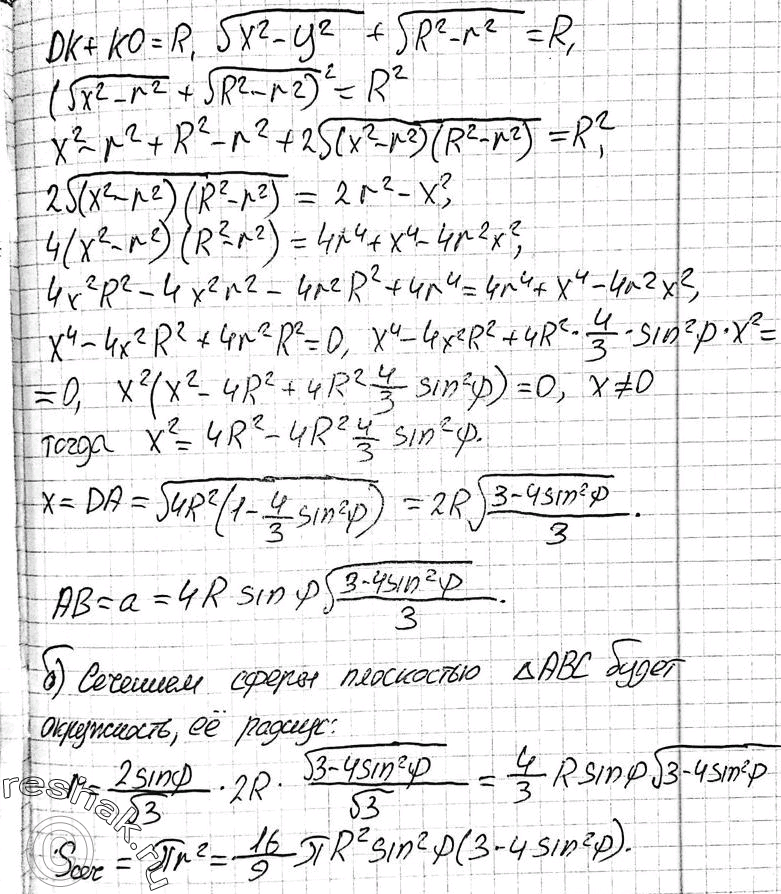 DK + KO = R, √(x² - y²) + √(R² - r²) = R,
(√(x² - r²) + √(R² - r²))² = R²
x² - r² + R² - r² + 2√((x² - r²)(R² - r²)) = R²,
2√((x² - r²)(R² - r²)) = 2r² - x²,
4(x² - r²)(R² - r²) = 4r⁴ + x⁴ - 4r²x²,
4x²R² - 4x²r² - 4r²R² + 4r⁴ = 4r⁴ + x⁴ - 4r²x²,
x⁴ - 4x²R² + 4r²R² = 0, x⁴ - 4x²R² + 4R² · 4/3 · sin²φ · x² =
= 0, x²(x² - 4R² + 4R² 4/3 sin²φ) = 0, x ≠ 0
тогда x² = 4R² - 4R² 4/3 sin²φ.
x = DA = √(4R²(1 - 4/3 sin²φ)) = 2R√((3 - 4sin²φ)/3).
AB = a = 4R sin φ √((3 - 4sin²φ)/3).
б) Сечением сферы плоскостью △ABC будет
окружность, её радиус:
r = 2sinφ/√3 · 2R · √(3 - 4sin²φ)/√3 = 4/3 R sinφ √(3 - 4sin²φ)
Sсеч = πr² = 16/9 πR² sin²φ(3 - 4sin²φ).
reshak.ru